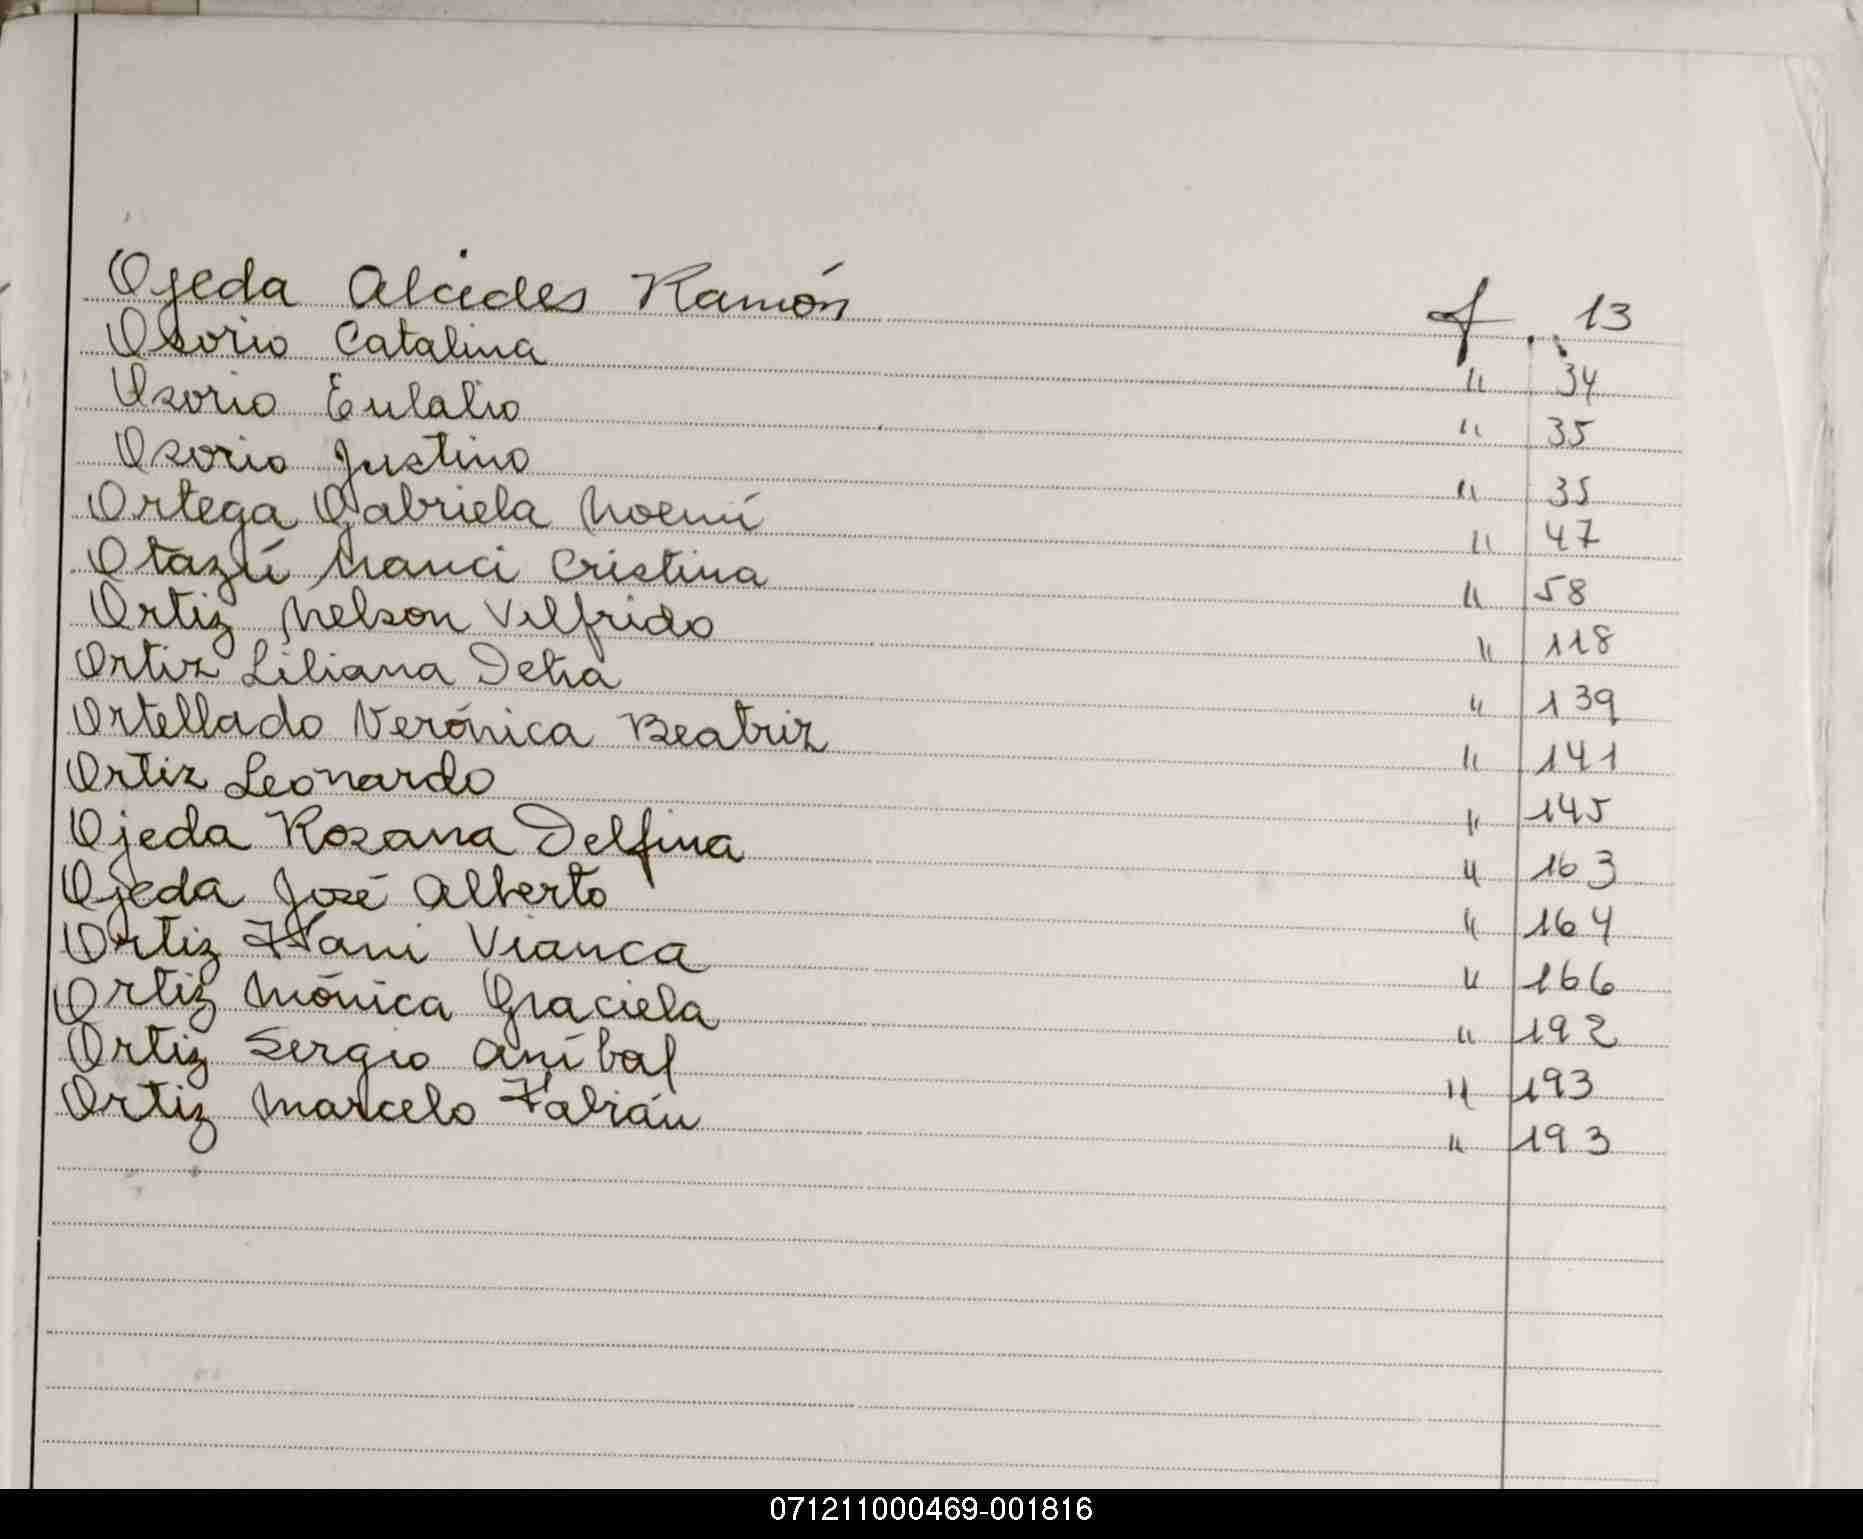 Ojeda Alcides Ramón f. 13
Osorio Catalina " 34
Osorio Eulalio " 35
Osorio Justino " 35
Ortega Gabriela Noemí " 47
Otazú Nanci Cristina " 58
Ortiz Nelson Vilfrido " 118
Ortiz Liliana Delia " 139
Ortellado Verónica Beatriz " 141
Ortiz Leonardo " 145
Ojeda Rosana Delfina " 163
Ojeda José Alberto " 164
Ortiz Vianca " 166
Ortiz Mónica Graciela " 192
Ortiz Sergio Aníbal " 193
Ortiz Marcelo Fabián " 193
071211000469-001816